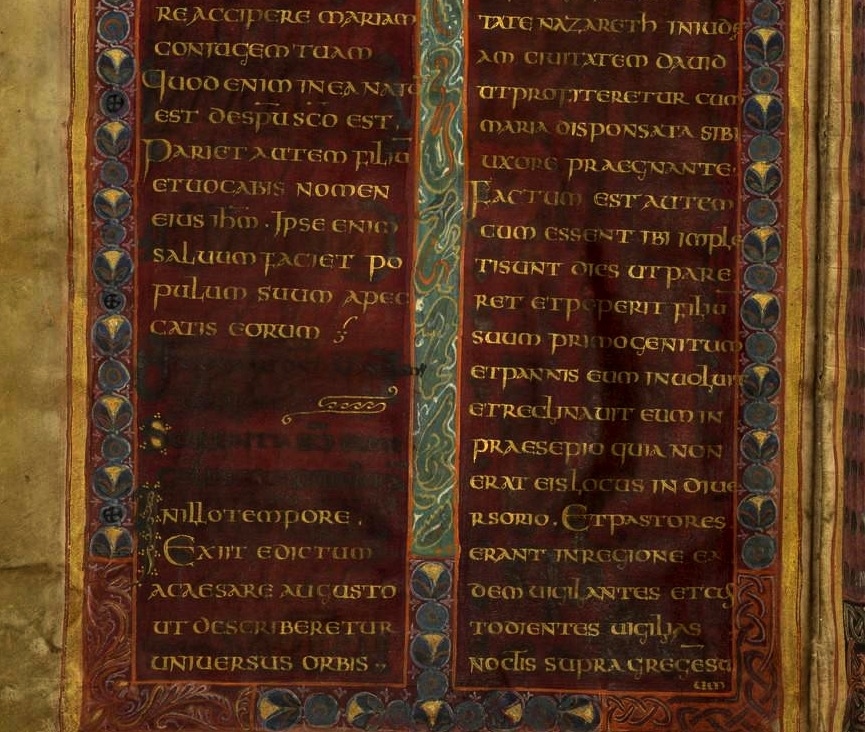 REACCIPERE MARIAM
CONIUGEM TUAM
QUOD ENIM IN EA NATŪ
EST DE SPŪ SCO EST.
PARIET AUTEM FILIŪ
ET UOCABIS NOMEN
EIUS IHM. IPSE ENIM
SALUUM FACIET PO
PULUM SUUM APEC
CATIS EORUM
IN ILLO TEMPORE.
EXIIT EDICTUM
A CAESARE AUGUSTO
UT DESCRIBERETUR
UNIUERSUS ORBIS
TATE NAZARETH IN IUDE
AM CIUITATEM DAUID
UT PROFITERETUR CUM
MARIA DISPONSATA SIBI
UXORE PRAEGNANTE.
FACTUM EST AUTEM
CUM ESSENT IBI IMPLE
TI SUNT DIES UT PARE
RET ET PEPERIT FILIŪ
SUUM PRIMOGENITUM
ET PANNIS EUM INUOLUIT
ET RECLINAUIT EUM IN
PRAESEPIO QUIA NON
ERAT EIS LOCUS IN DIUE
RSORIO. ET PASTORES
ERANT IN REGIONE EA
DEM UIGILANTES ET CUS
TODIENTES UIGILIAS
NOCTIS SUPRA GREGE SU